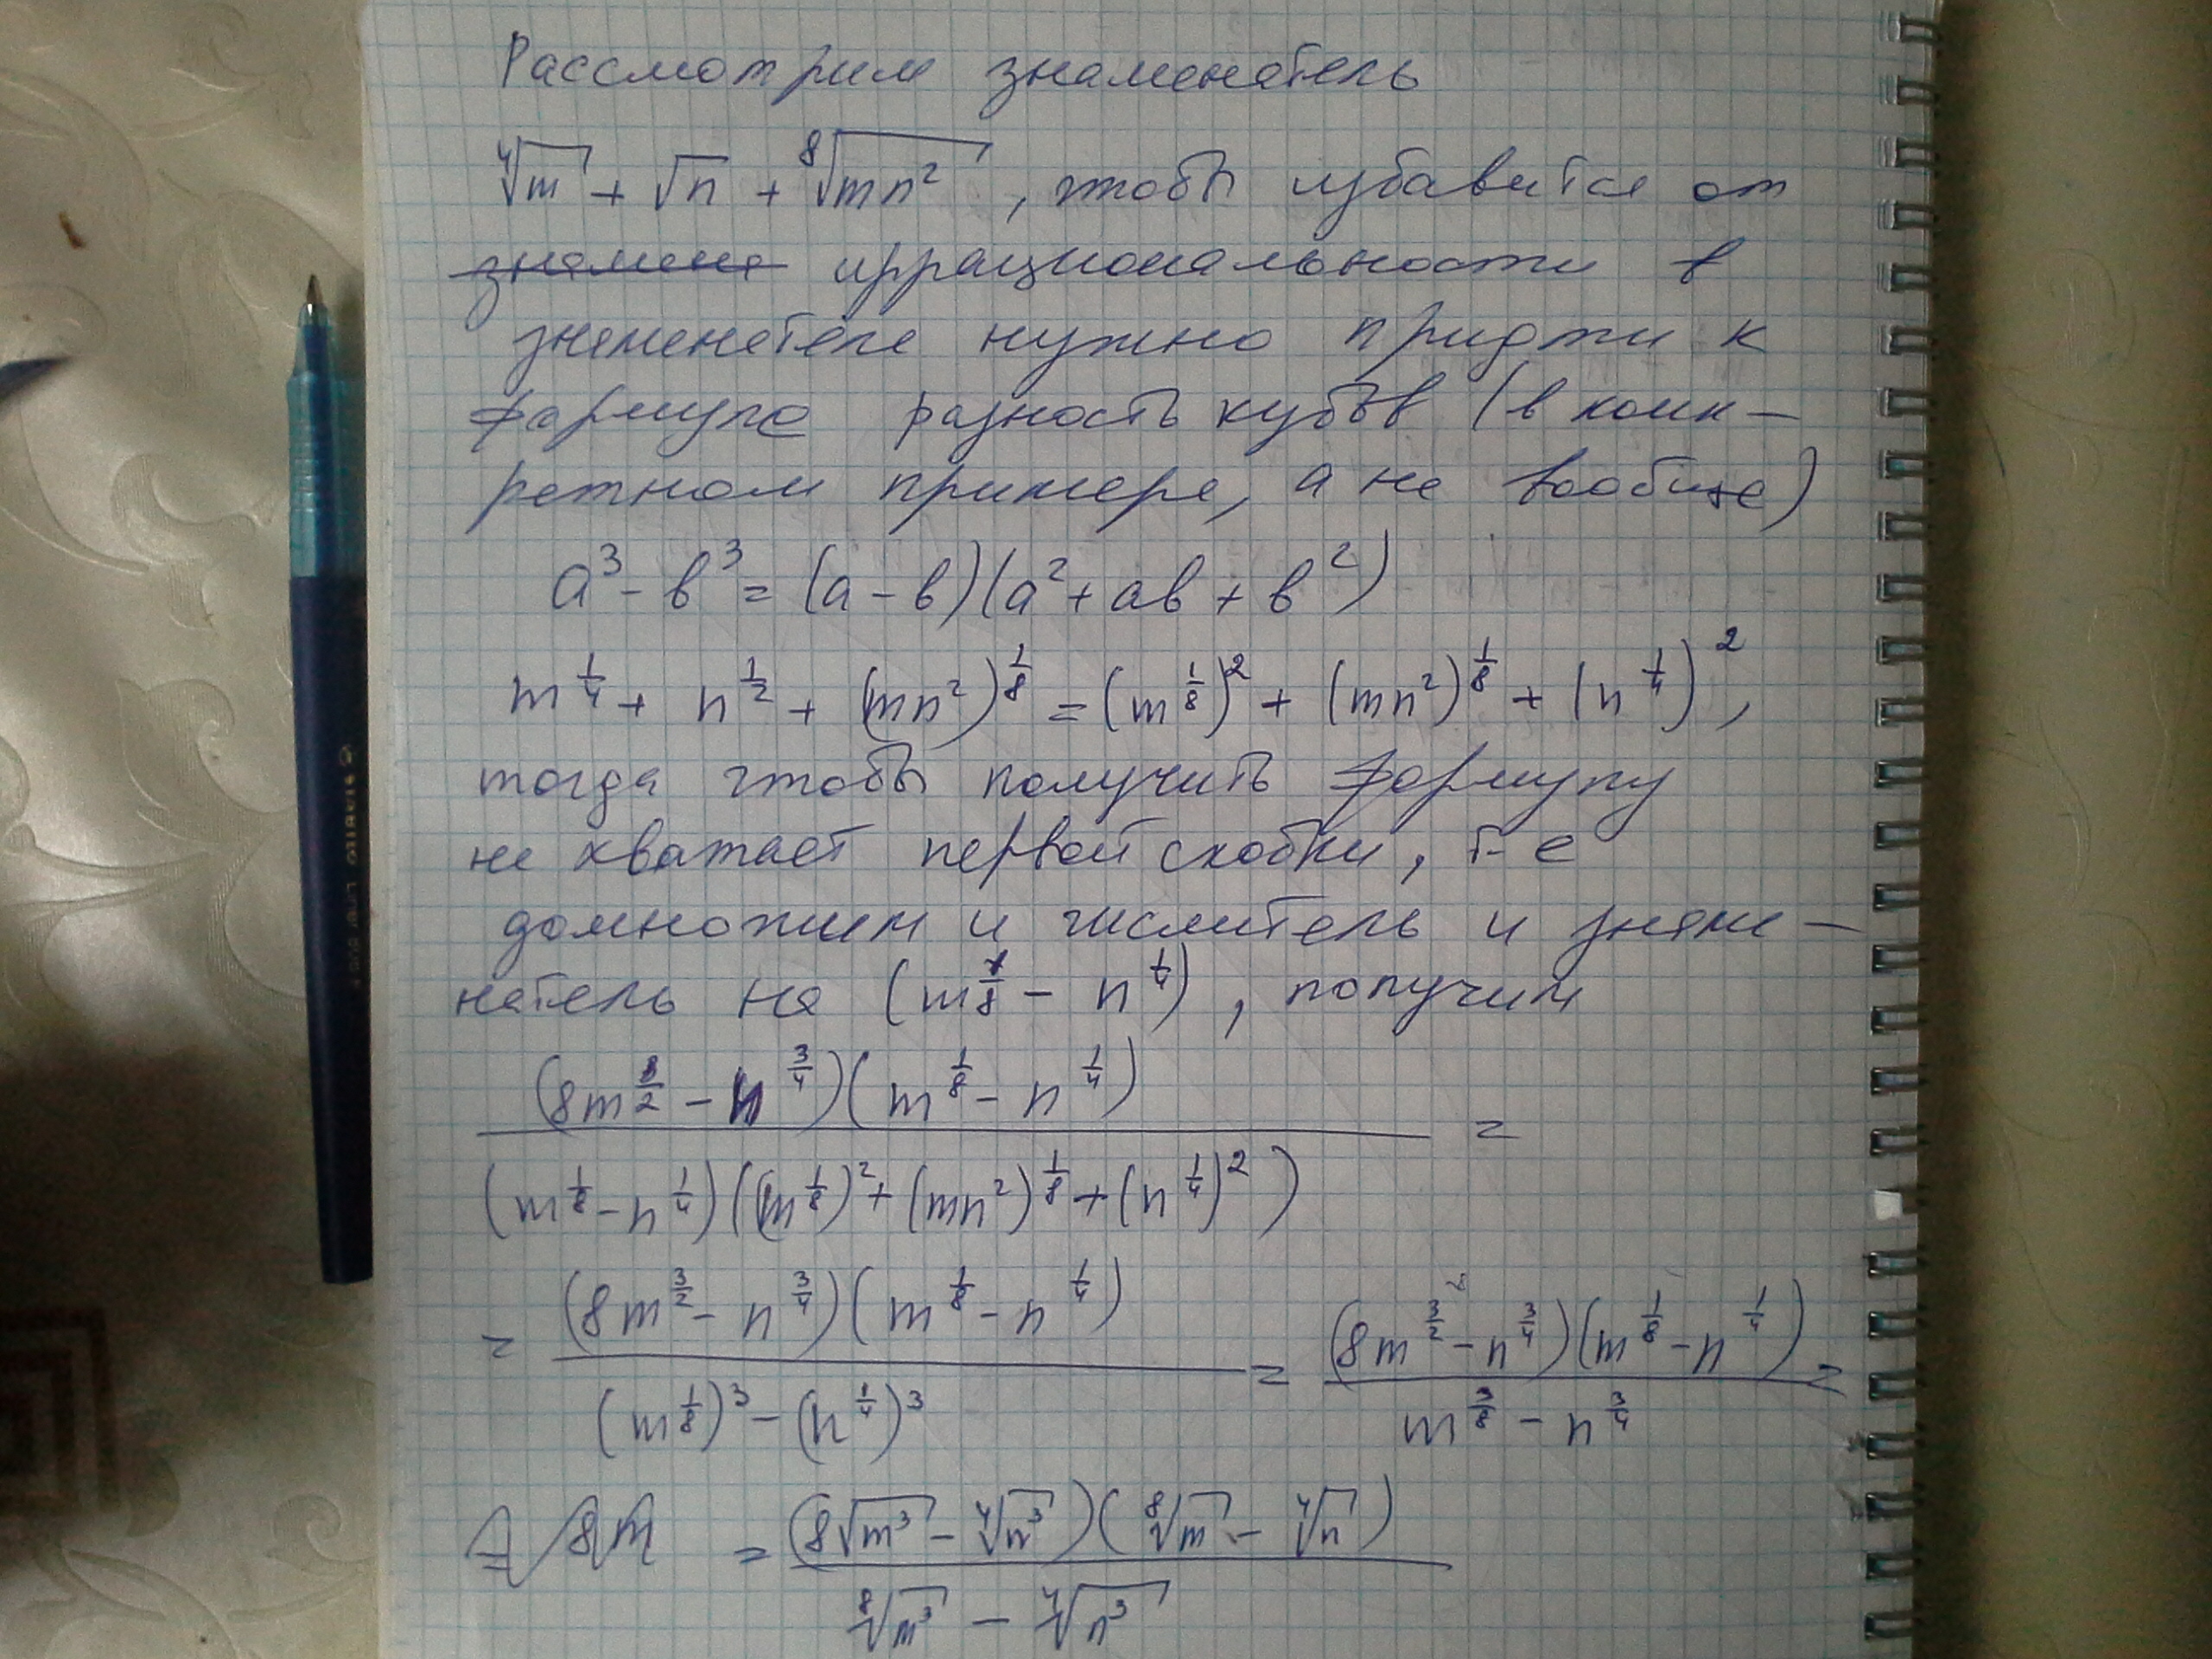 Рассмотрим знаменатель
⁴√m + √n + ⁸√mn², чтобы избавится от
знамена иррациональности в
знаменателе нужно придти к
формуле разность кубов (в конк-
ретном примере, а не вообще)
a³ - b³ = (a - b)(a² + ab + b²)
m^(1/4) + n^(1/2) + (mn²)^(1/8) = (m^(1/8))² + (mn²)^(1/8) + (n^(1/4))²,
тогда чтобы получить формулу
не хватает первой скобки, т-е
домножим и числитель и знаме-
натель на (m^(1/8) - n^(1/4)), получим
(8m^(3/2) - n^(3/4))(m^(1/8) - n^(1/4)) =
(m^(1/8) - n^(1/4))((m^(1/8))² + (mn²)^(1/8) + (n^(1/4))²)
= (8m^(3/2) - n^(3/4))(m^(1/8) - n^(1/4)) / ((m^(1/8))³ - (n^(1/4))³) = (8m^(3/2) - n^(3/4))(m^(1/8) - n^(1/4)) / (m^(3/8) - n^(3/4)) =
= (8√m³ - ⁴√n³)(⁸√m - ⁴√n) / (⁸√m³ - ⁴√n³)